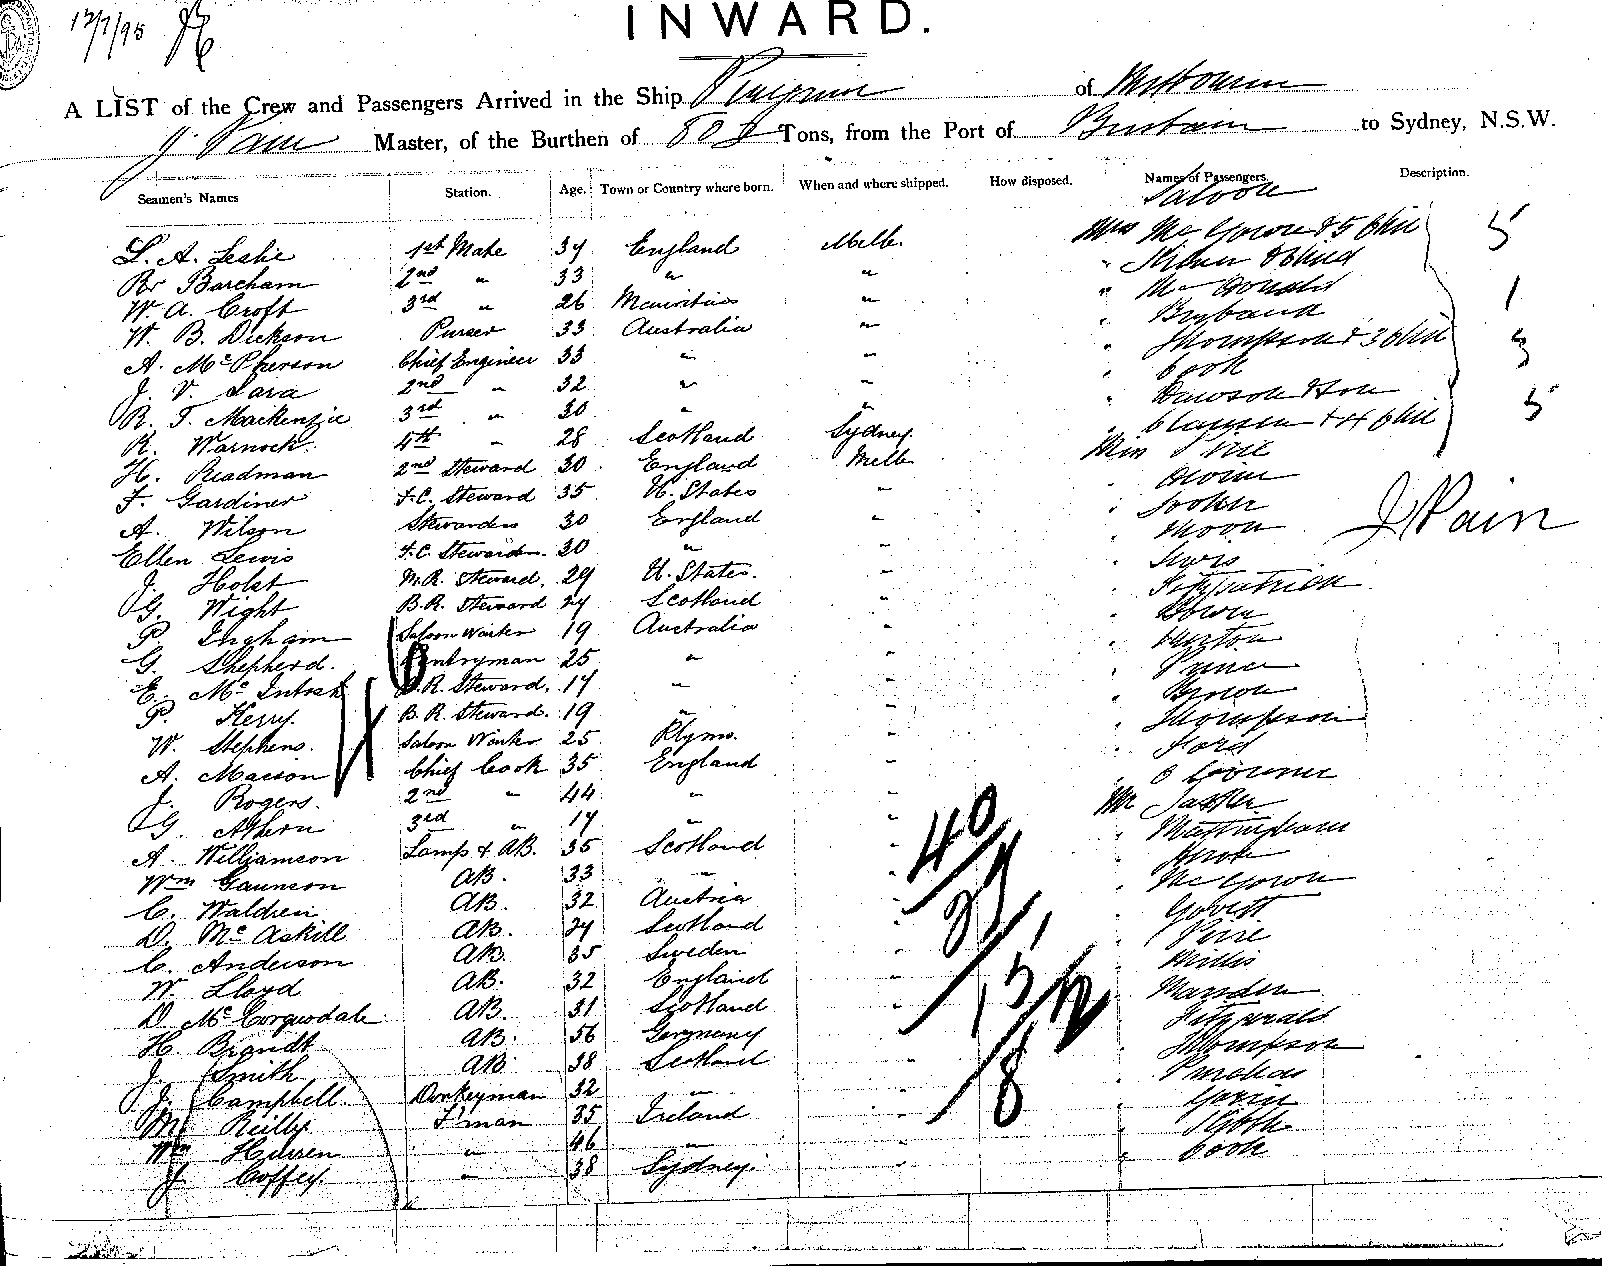 12/7/95
INWARD.
A LIST of the Crew and Passengers Arrived in the Ship of Melbourne
J. Pain Master, of the Burthen of Tons, from the Port of Brisbane to Sydney, N.S.W.
Seamen's Names Station. Age. Town or Country where born. When and where shipped. How disposed. Names of Passengers. Description.
Saloon
L. A. Leslie 1st Mate 37 England Melb. Mrs McGowen & 5 Chil 5
Barcham 2nd " 33 " " " & Child
W. A. Croft 3rd " 26 Mauritius " " McDonald 1
W. B. Dickson Purser 33 Australia " " Brabant
A. McPherson Chief Engineer 33 " " " Thompson & 3 Chil 3
J. V. Lara 2nd " 32 " " " Cook
R. T. Mackenzie 3rd " 30 " " " Dawson & Son
R. Warnock. 4th " 28 Scotland Sydney. " Clausen & 4 Chil 5
H. Readman 2nd Steward 30 England Melb Miss Pirie
F. Gardiner F.C. Steward 35 U. States " "
A. Wilson Stewardess 30 England " "
Ellen Lewis F.C. Stewardess. 30 " " " Moon J Pain
J. Holst M.R. Steward. 29 U. States. " " Lewis
G. Wight B.R. Steward 27 Scotland " " Fitzpatrick
P. Ingham Saloon Waiter 19 Australia " " Bowen
G. Shepherd. Pantryman 25 " " " Burton
E. McIntosh B.R. Steward. 17 " " "
P. Kerry. B.R. Steward. 19 " " " Brown
W. Stephens. Saloon Waiter 25 Plymo. " " Thompson
A. Maeson Chief Cook 35 England " " Ford
J. Rogers. 2nd " 44 " " " O'Connor
G. Athorn 3rd " 17 " " Mr Tasker
A. Williamson Lamps & AB. 35 Scotland " "
Wm Gaunson AB. 33 " " "
C. Waldren AB. 32 Austria " " McGown
D. McAskill AB. 27 Scotland " " Govett
C. Anderson AB. 35 Sweden " " Pirie
W. Lloyd AB. 32 England " " Willis
D. McCorquodale AB. 31 Scotland " " Marsden
H. Brandt AB. 56 Germany " " Fitzgerald
J. Smith AB. 38 Scotland " " Thompson
J. Campbell. Donkeyman 32 " " " Purchas
M. Reilly F'man 35 Ireland " " Gavin
Wm " 46 " " "
J. Coffey. " 38 Sydney. " " Cook
40
8